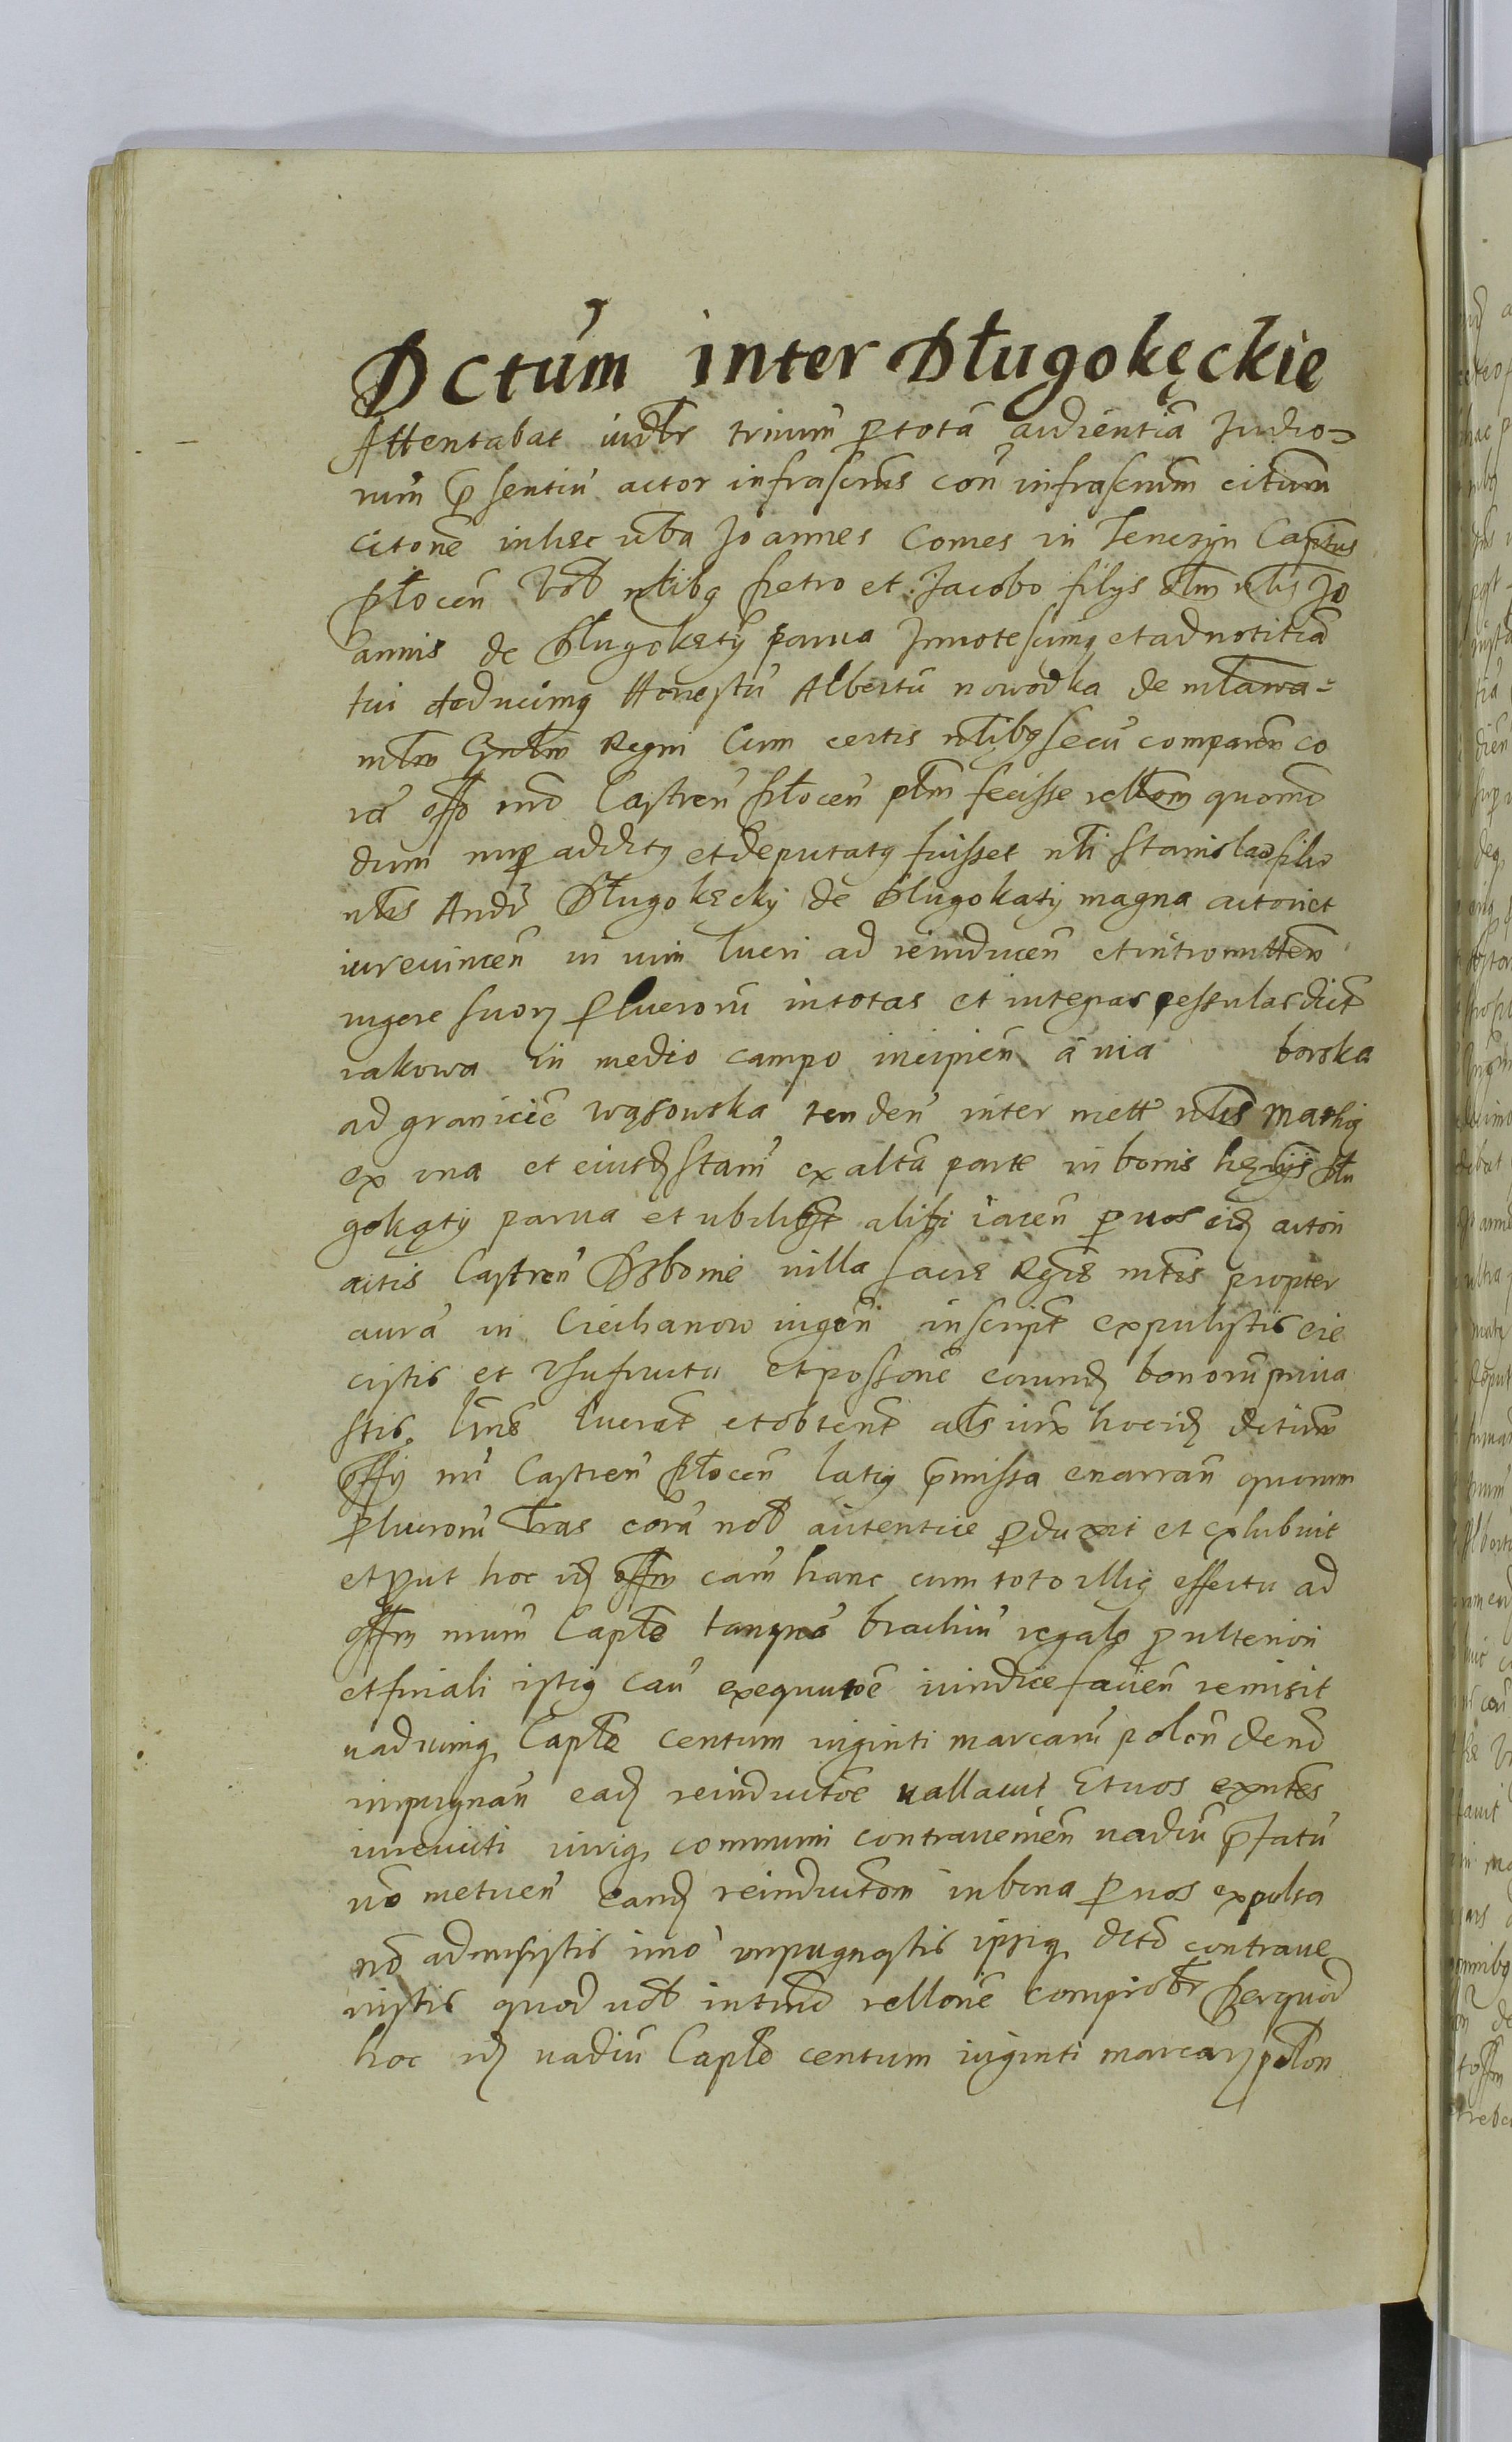 Dctum inter Długokęckie
Attentabat iudtr trinum ptotā audientiā Judio=
rum psentiū actor infrascrus con infrascrum citum
citonē inhec uba Joannes Comes in Tenczyn Captus
płocen Vob nlibq petro et Jacobo filys olim nlis Jo
annis de Długokęty parua Innotescimq et ad notitiā
tui deducimq Honestū Albertū nowodka de mława=
mlm Gnlm Regni Cum certis nlibq secū comparen co
rā offo nro Castren płocen plm fecisse rellom quomo
dum nup additq et deputatq fuisset nli Stanislao filio
nlis Andr Długokęcky de Długokąty magna actori et
iureuincen in uim lucri ad reinducen et intromitten
uigere suorz plucrorū in totas et integras pessulas dict
rakowa in medio campo incipien a uia borska
ad graniciē wąsowska tenden inter mett nlis Mathię
ex una et eiusdz stani ex altā parte in bonis hęrijs dłu
gokąty parua et ubilibet alibi iacen p uos eidz actori
actis Castren villa sacre Regie mtis propter
aurā in Ciechanow uigen inscript expulistis eie
cistis et Vsufructu et possonē eorumdz bonorū priua
stis, lucrat et obtent als iurx hocidz dictum
offij nri Castren płocen latiq pmissa enarran quorum
plucrorū lras corā nob autentice pduxit et exhibuit
et put hoc idz offm cam hanc cum toto illiq effectu ad
offm nrum Caplē tanqnā brachiū regale p ulteriori
et finali istiq cau exequutoē iuridice facien remisit
uadiumq Caplē centum uiginti marcarū polon deno
impugnan eadz reinductoē uallauit Et uos exntes
iureuicti iuriq communi contrauenien uadiū pfatū
no metuen eandz reinductom in bona p uos expulsa
no admisistis imo impugnastis ipsiq dcto contraue
nistis quod uob intmo rellonē comprobtr Perquod
hoc idz uadiū Caplē centum uiginti marcarz polon